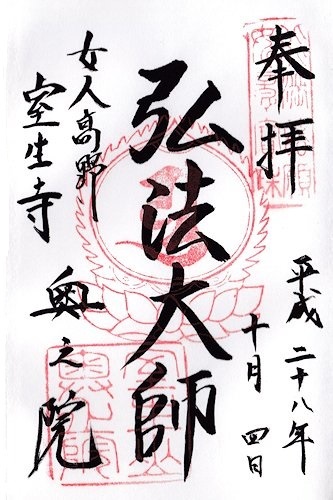 奉拝
平成二十八年
十月四日
弘法大師
女人高野
室生寺
奥之院